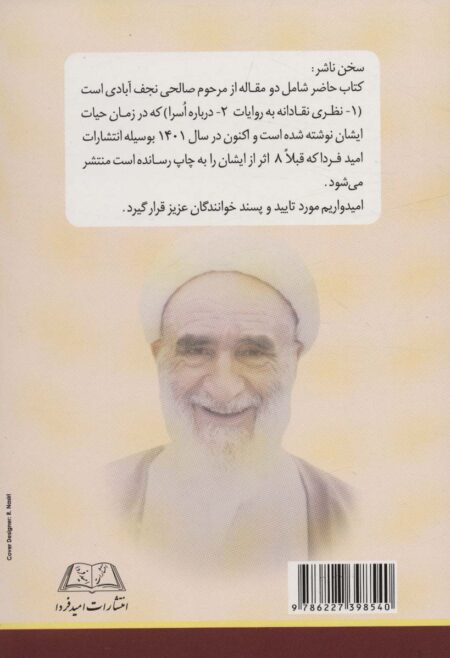 سخن ناشر:
کتاب حاضر شامل دو مقاله از مرحوم صالحی نجف آبادی است
(۱- نظری نقادانه به روایات ۲- درباره اُسرا) که در زمان حیات
ایشان نوشته شده است و اکنون در سال ۱۴۰۱ بوسیله انتشارات
امید فردا که قبلاً ۸ اثر از ایشان را به چاپ رسانده است منتشر
می‌شود.
امیدواریم مورد تایید و پسند خوانندگان عزیز قرار گیرد.
Cover Designer: R. Nasiri
انتشارات امید فردا
9 786227 398540